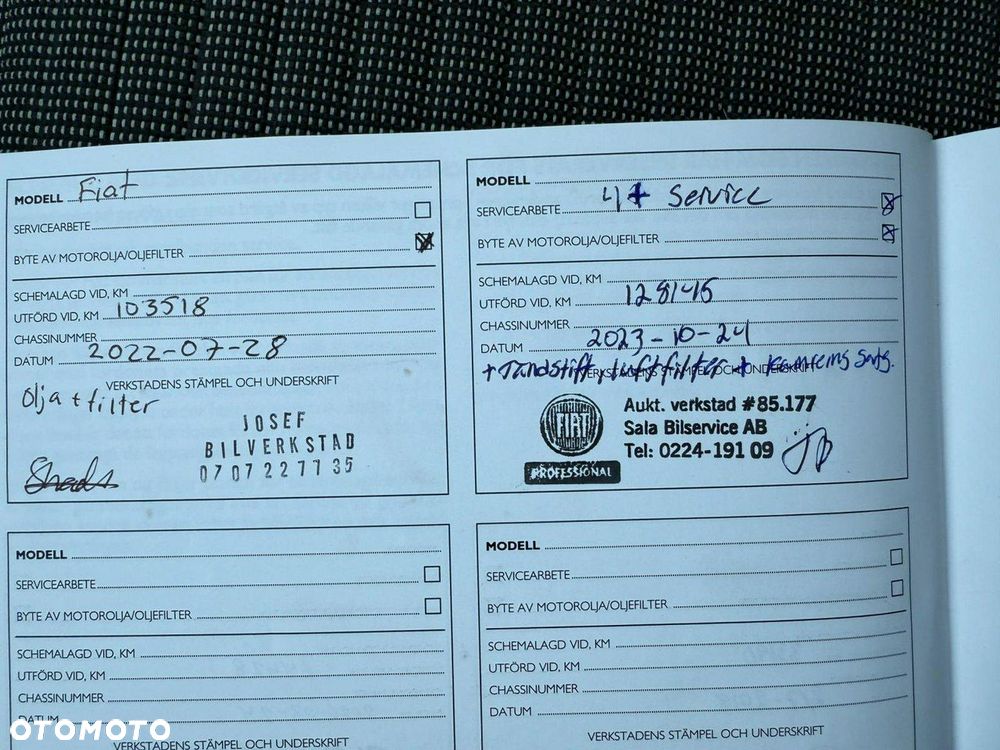 MODELL Fiat
SERVICEARBETE
BYTE AV MOTOROLJA/OLJEFILTER
SCHEMALAGD VID, KM
UTFÖRD VID, KM 103518
CHASSINUMMER
DATUM 2022-07-28
VERKSTADENS STÄMPEL OCH UNDERSKRIFT
Olja + filter
JOSEF
BILVERKSTAD
0707227735
MODELL
SERVICEARBETE service
BYTE AV MOTOROLJA/OLJEFILTER
SCHEMALAGD VID, KM
UTFÖRD VID, KM 128145
CHASSINUMMER
DATUM 2023-10-24
+ Tandstift, luftfilter + kamrems sats.
VERKSTADENS STÄMPEL OCH UNDERSKRIFT
FIAT
PROFESSIONAL
Aukt. verkstad #85.177
Sala Bilservice AB
Tel: 0224-191 09
MODELL
SERVICEARBETE
BYTE AV MOTOROLJA/OLJEFILTER
SCHEMALAGD VID, KM
UTFÖRD VID, KM
CHASSINUMMER
DATUM
VERKSTADENS STÄMPEL OCH UNDERSKRIFT
MODELL
SERVICEARBETE
BYTE AV MOTOROLJA/OLJEFILTER
SCHEMALAGD VID, KM
UTFÖRD VID, KM
CHASSINUMMER
DATUM
VERKSTADENS STÄMPEL OCH UNDERSKRIFT
OTOMOTO